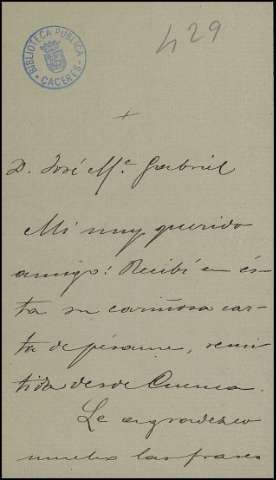 BIBLIOTECA PÚBLICA
CÁCERES
429
+
D. José Mª Gabriel
Mi muy querido
amigo: Recibí en és-
ta su cariñosa car-
ta de pésame, remi-
tida desde Cuenca.
Le agradezco
mucho las frases